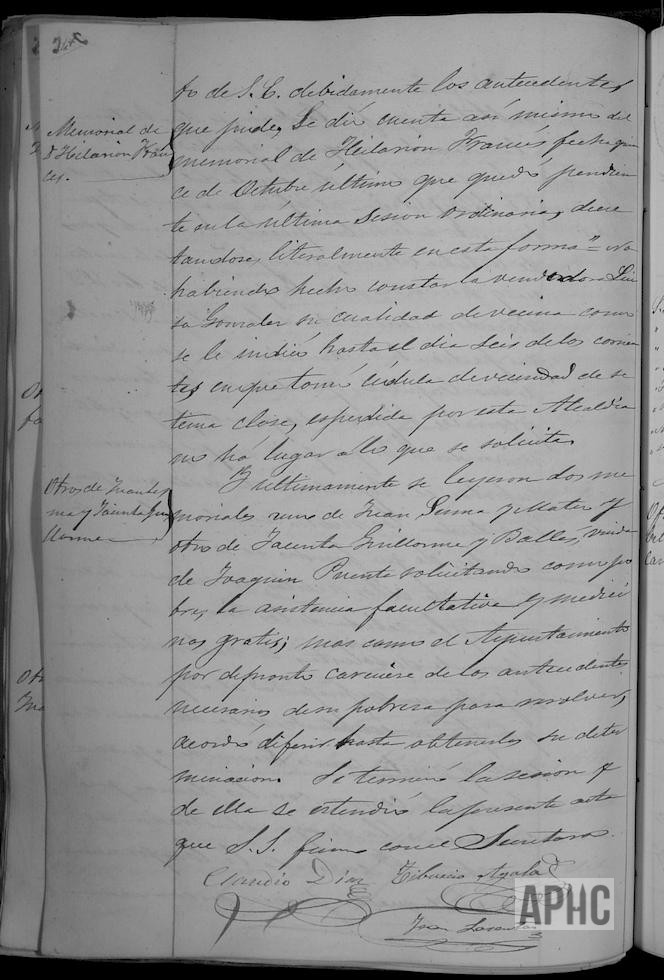 to de S. E. debidamente los antecedentes
Memorial de
D Hilarion Fran
ces.
que pide, Se dió cuenta así mismo del
memorial de Hilarion Francés fecha quin
ce de Octubre último que quedó pendien
te en la última Sesion ordinaria, decre
tandose, literalmente en esta forma "= No
habiendo hecho constar la vendedora Lui
sa Gonzalez su cualidad de vecina como
se le indicó hasta el dia seis de los corrien
tes en que tomó cédula de vecindad de se
tema clase, espedida por esta Alcaldia
no há lugar a lo que se solicita.
Otros de Juan Ser
na y Jacinta Gui
llorme
Y ultimamente se leyeron dos me
moriales uno de Juan Serna y Mateo y
otro de Jacinta Guillorme y Ballés, viuda
de Joaquin Puente solicitando como po
bres, la asistencia facultativa y medici
nas gratis; mas como el Ayuntamiento
por depronto careciese de los antecedentes
necesarios de su pobreza para resolver,
acordó diferir hasta obtenerlos su deter
minacion. Se terminó la sesion y
de ella se estendió la presente acta
que S. S. firma con el Secretario.
Claudio Diaz Tiburcio Ayala
Juan
APHC